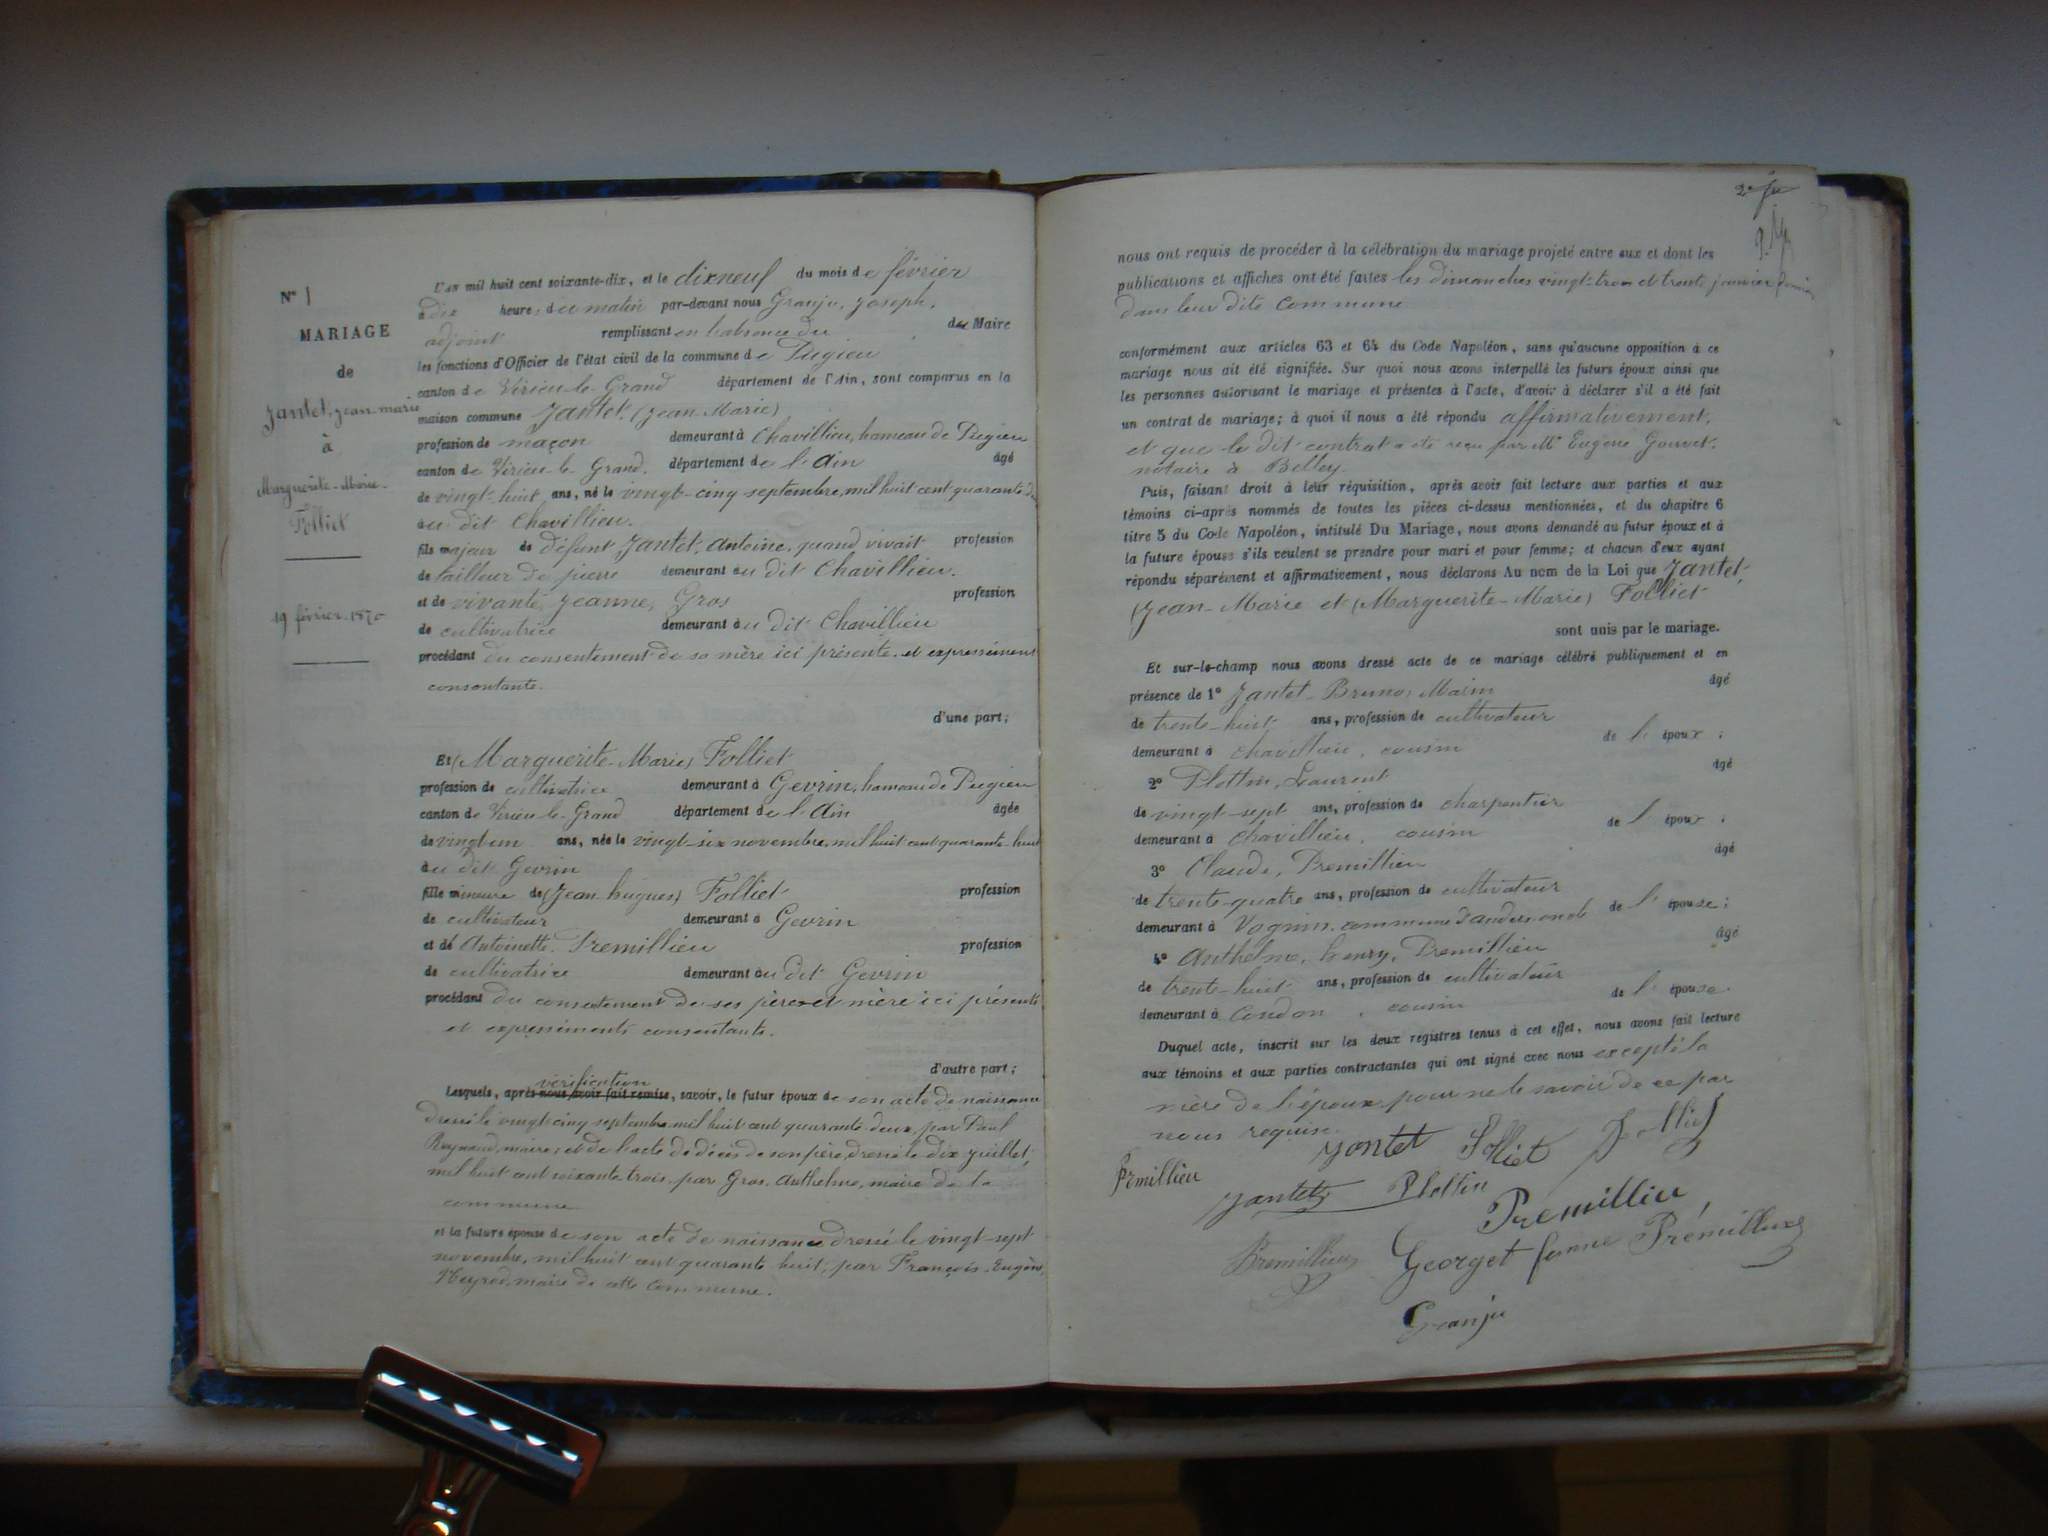 N° 1
MARIAGE
de
Jantet, Jean-marie
à
Marguerite-Marie
Folliet
19 février 1870
L'an mil huit cent soixante-dix, et le dixneuf du mois de février
à dix heures du matin par-devant nous Granju, Joseph,
adjoint remplissant en l'absence du Maire
les fonctions d'Officier de l'état civil de la commune de Pugieu
canton de Virieu-le-Grand département de l'Ain, sont comparus en la
maison commune Jantet, (Jean-Marie)
profession de maçon demeurant à Chavillieu, hameau de Pugieu
canton de Virieu-le-Grand, département de l'Ain âgé
de vingt-huit ans, né le vingt-cinq septembre, mil huit cent quarante
au dit Chavillieu.
fils majeur de défunt Jantet, Antoine, quand vivait profession
de tailleur de pierre demeurant au dit Chavillieu.
et de vivante, Jeanne, Gros profession
de cultivatrice demeurant au dit Chavillieu
procédant du consentement de sa mère ici présente et expressément
consentante.
d'une part;
Et (Marguerite-Marie) Folliet
profession de cultivatrice demeurant à Gevrin, hameau de Pugieu
canton de Virieu-le-Grand département de l'Ain âgée
de vingt un ans, née le vingt-six novembre, mil huit cent quarante-huit
au dit Gevrin
fille mineure de (Jean-hugues) Folliet profession
de cultivateur demeurant à Gevrin
et de Antoinette Premillieu profession
de cultivatrice demeurant au dit Gevrin
procédant du consentement de ses père et mère ici présents
et expressément consentants.
d'autre part;
vérification
Lesquels, après nous avoir fait remise, savoir, le futur époux de son acte de naissance
dressé le vingt-cinq septembre mil huit cent quarante deux, par Paul
Reynaud, maire; et de l'acte de décès de son père, dressé le dix juillet,
mil huit cent soixante trois, par Gros, Anthelme, maire de la
commune
et la future épouse de son acte de naissance dressé le vingt-sept
novembre, mil huit cent quarante huit, par François-Eugène,
maire de cette commune.
2e
nous ont requis de procéder à la célébration du mariage projeté entre eux et dont les
publications et affiches ont été faites les dimanches vingt-trois et trente janvier dernier
dans leur dite commune
conformément aux articles 63 et 64 du Code Napoléon, sans qu'aucune opposition à ce
mariage nous ait été signifiée. Sur quoi nous avons interpellé les futurs époux ainsi que
les personnes autorisant le mariage et présentes à l'acte, d'avoir à déclarer s'il a été fait
un contrat de mariage; à quoi il nous a été répondu affirmativement,
et que le dit contrat a été reçu par Me Eugène Gouvet,
notaire à Belley
Puis, faisant droit à leur réquisition, après avoir fait lecture aux parties et aux
témoins ci-après nommés de toutes les pièces ci-dessus mentionnées, et du chapitre 6
titre 5 du Code Napoléon, intitulé Du Mariage, nous avons demandé au futur époux et à
la future épouse s'ils veulent se prendre pour mari et pour femme; et chacun d'eux ayant
répondu séparément et affirmativement, nous déclarons Au nom de la Loi que Jantet,
(Jean-Marie et (Marguerite-Marie) Folliet
sont unis par le mariage.
Et sur-le-champ nous avons dressé acte de ce mariage célébré publiquement et en
présence de 1° Jantet Bruno, Marin âgé
de trente-huit ans, profession de cultivateur
demeurant à Chavillieu, cousin de l'époux;
2° Plottin, Laurent âgé
de vingt-sept ans, profession de charpentier
demeurant à Chavillieu, cousin de l'époux;
3° Claude, Premillieu âgé
de trente-quatre ans, profession de cultivateur
demeurant à Vognin, commune d' de l'épouse;
4° Anthelme, henry, Premillieu âgé
de trente-huit ans, profession de cultivateur
demeurant à Condon, cousin de l'épouse.
Duquel acte, inscrit sur les deux registres tenus à cet effet, nous avons fait lecture
aux témoins et aux parties contractantes qui ont signé avec nous excepté la
mère de l'époux pour ne le savoir de ce par
nous requise.
Jantet Folliet Folliet
Premillieu
Jantet Plottin
Premillieu
Premillieu Georget femme Prémillieux
Granju